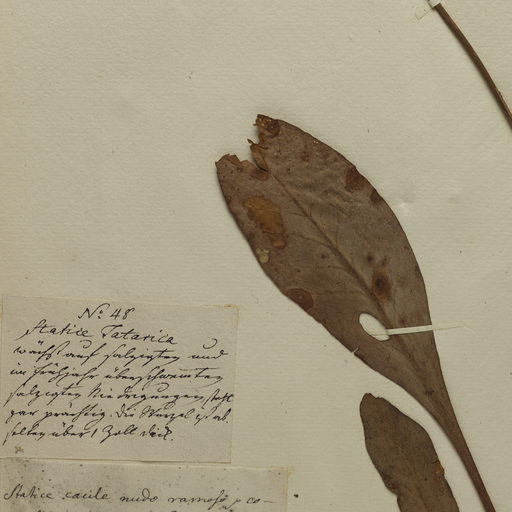 No 48
Statice Tatarica
wächst auf salzigten und
im Frühjahr überschwemten
salzigten Niedrigungen,
gar prächtig. die Wurzel ist
selten über 1 Zoll dick.
Statice caule nudo ramoso, co-